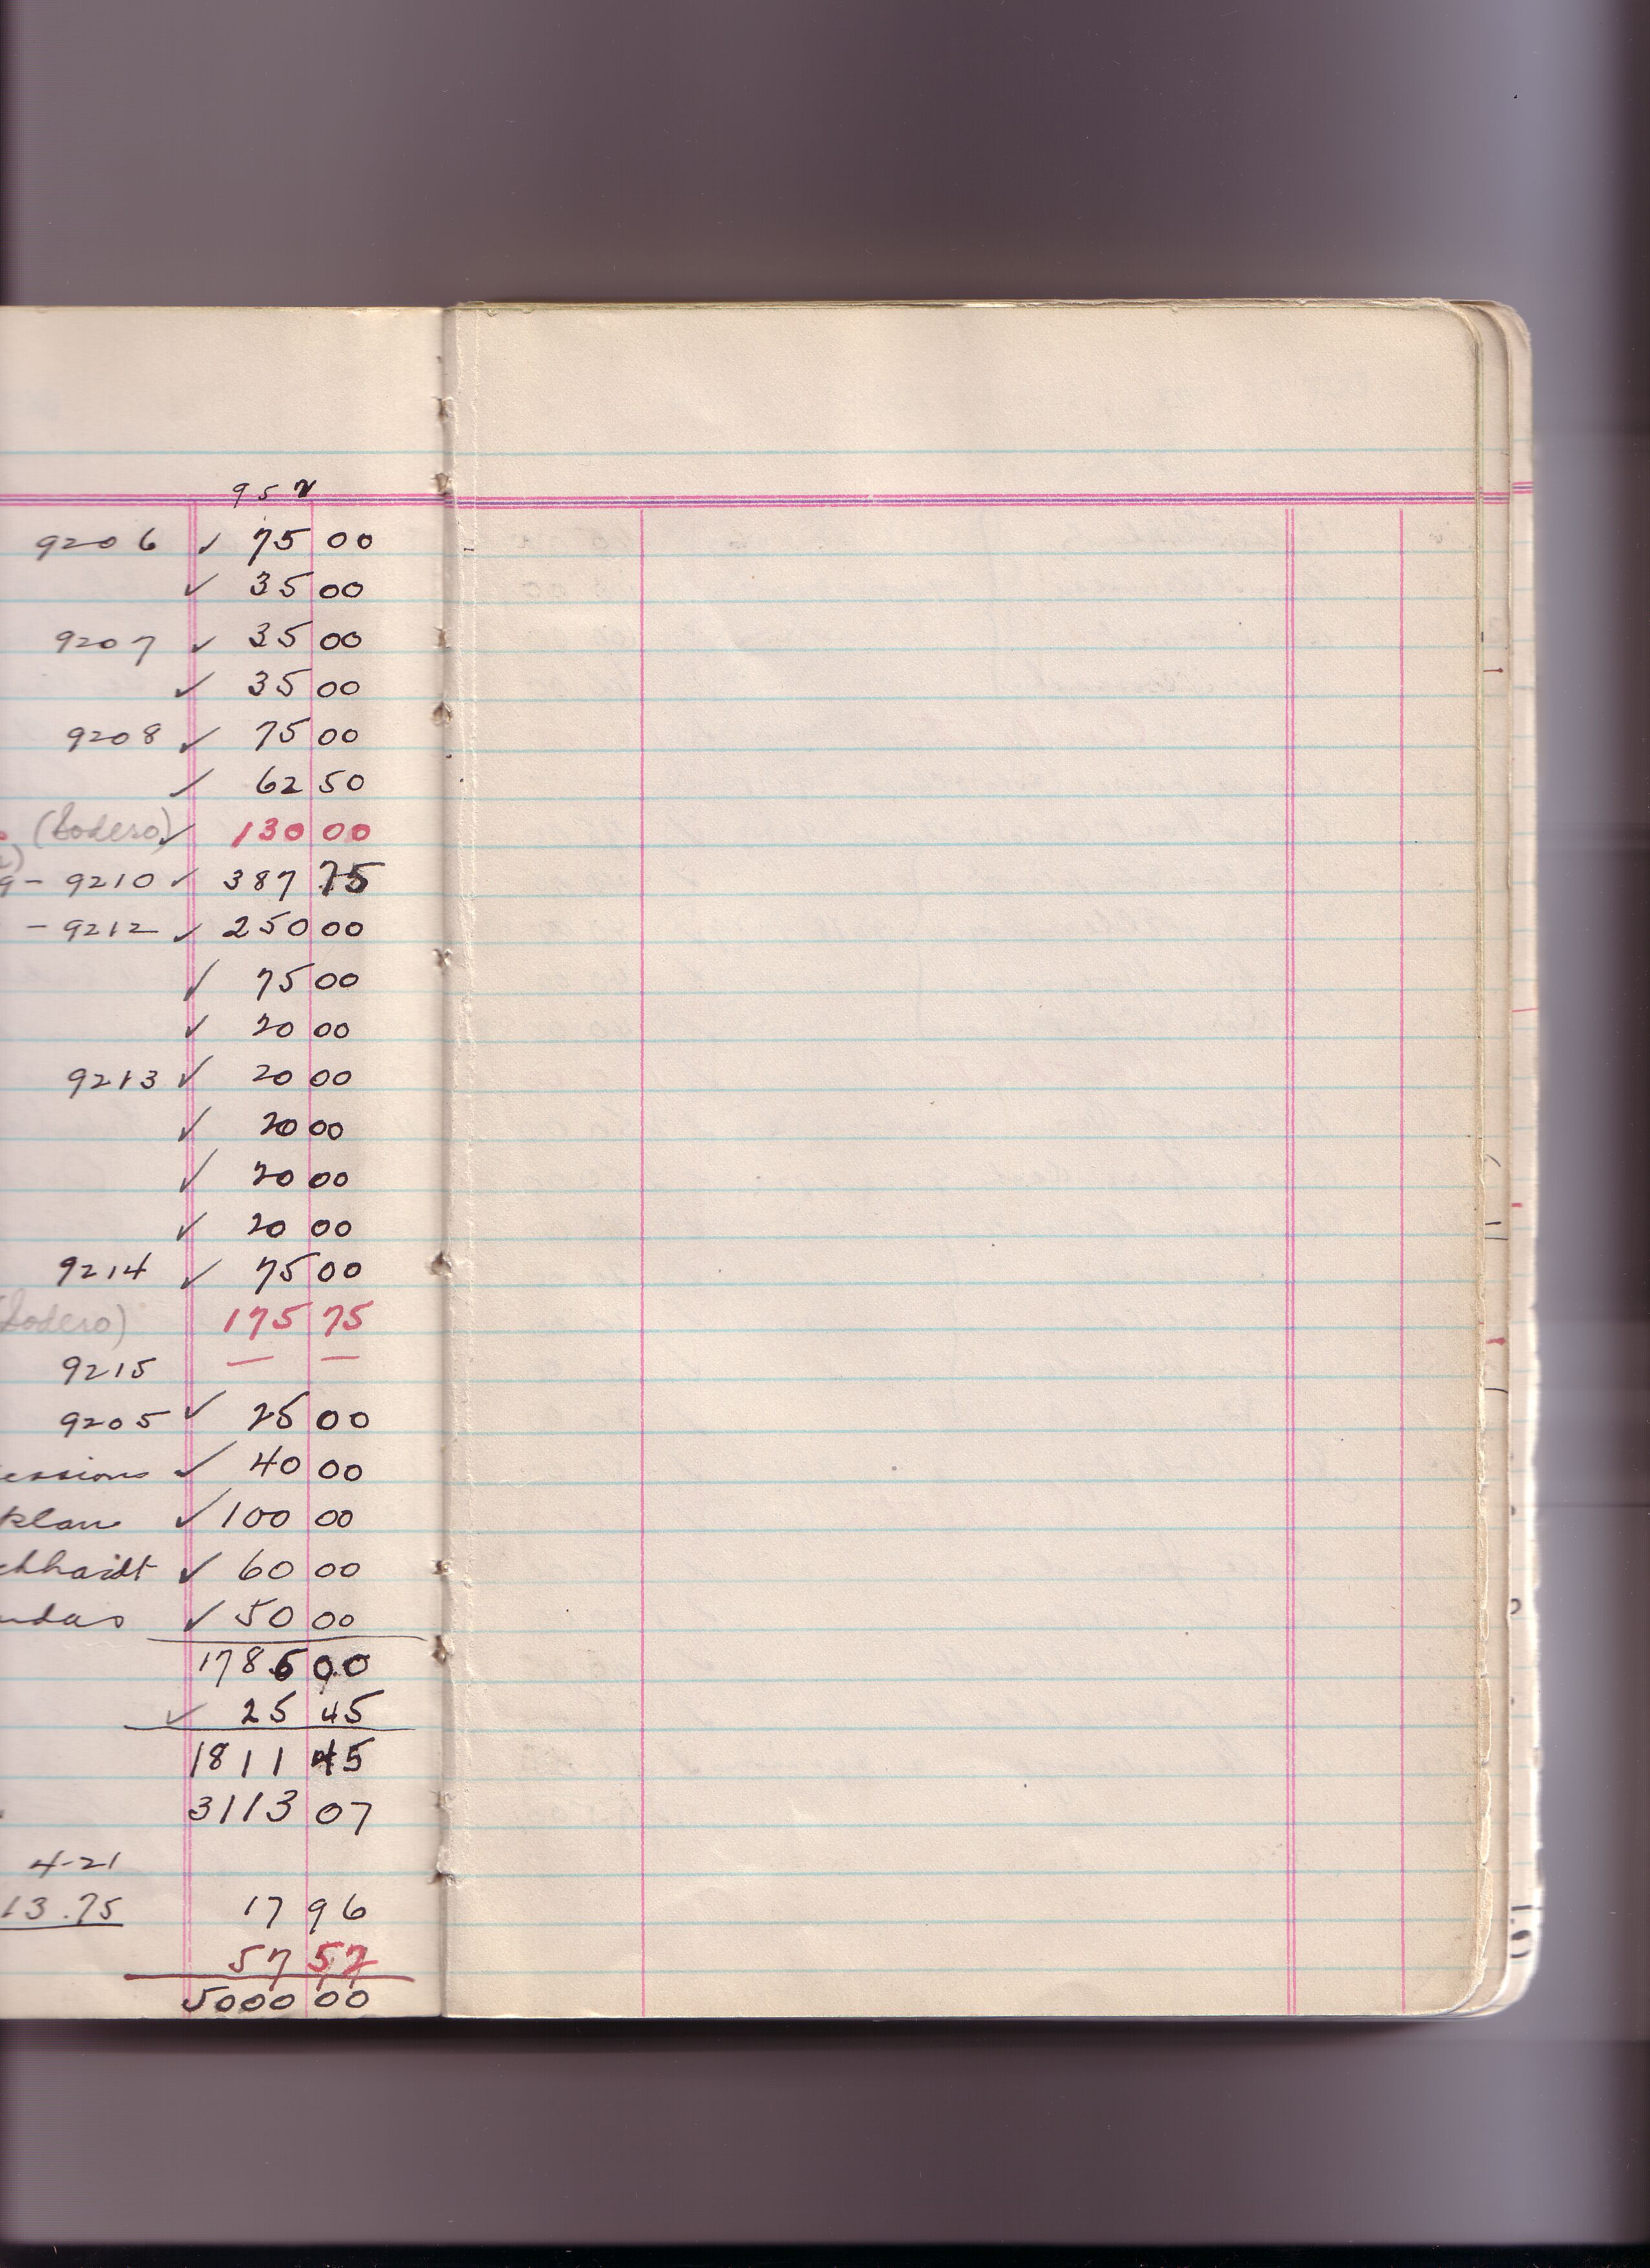 952
9206 ✓ 75 00
✓ 35 00
9207 ✓ 35 00
✓ 35 00
9208 ✓ 75 00
✓ 62 50
(Lodero) ✓ 130 00
9 - 9210 ✓ 387 75
- 9212 ✓ 250 00
✓ 75 00
✓ 20 00
9213 ✓ 20 00
✓ 20 00
✓ 20 00
✓ 20 00
9214 ✓ 75 00
(Lodero) 175 75
9215 — —
9205 ✓ 25 00
essions ✓ 40 00
plan ✓ 100 00
chhardt ✓ 60 00
ndas ✓ 50 00
1786 00
✓ 25 45
1811 45
3113 07
4-21
13.75 17 96
57 52
5000 00